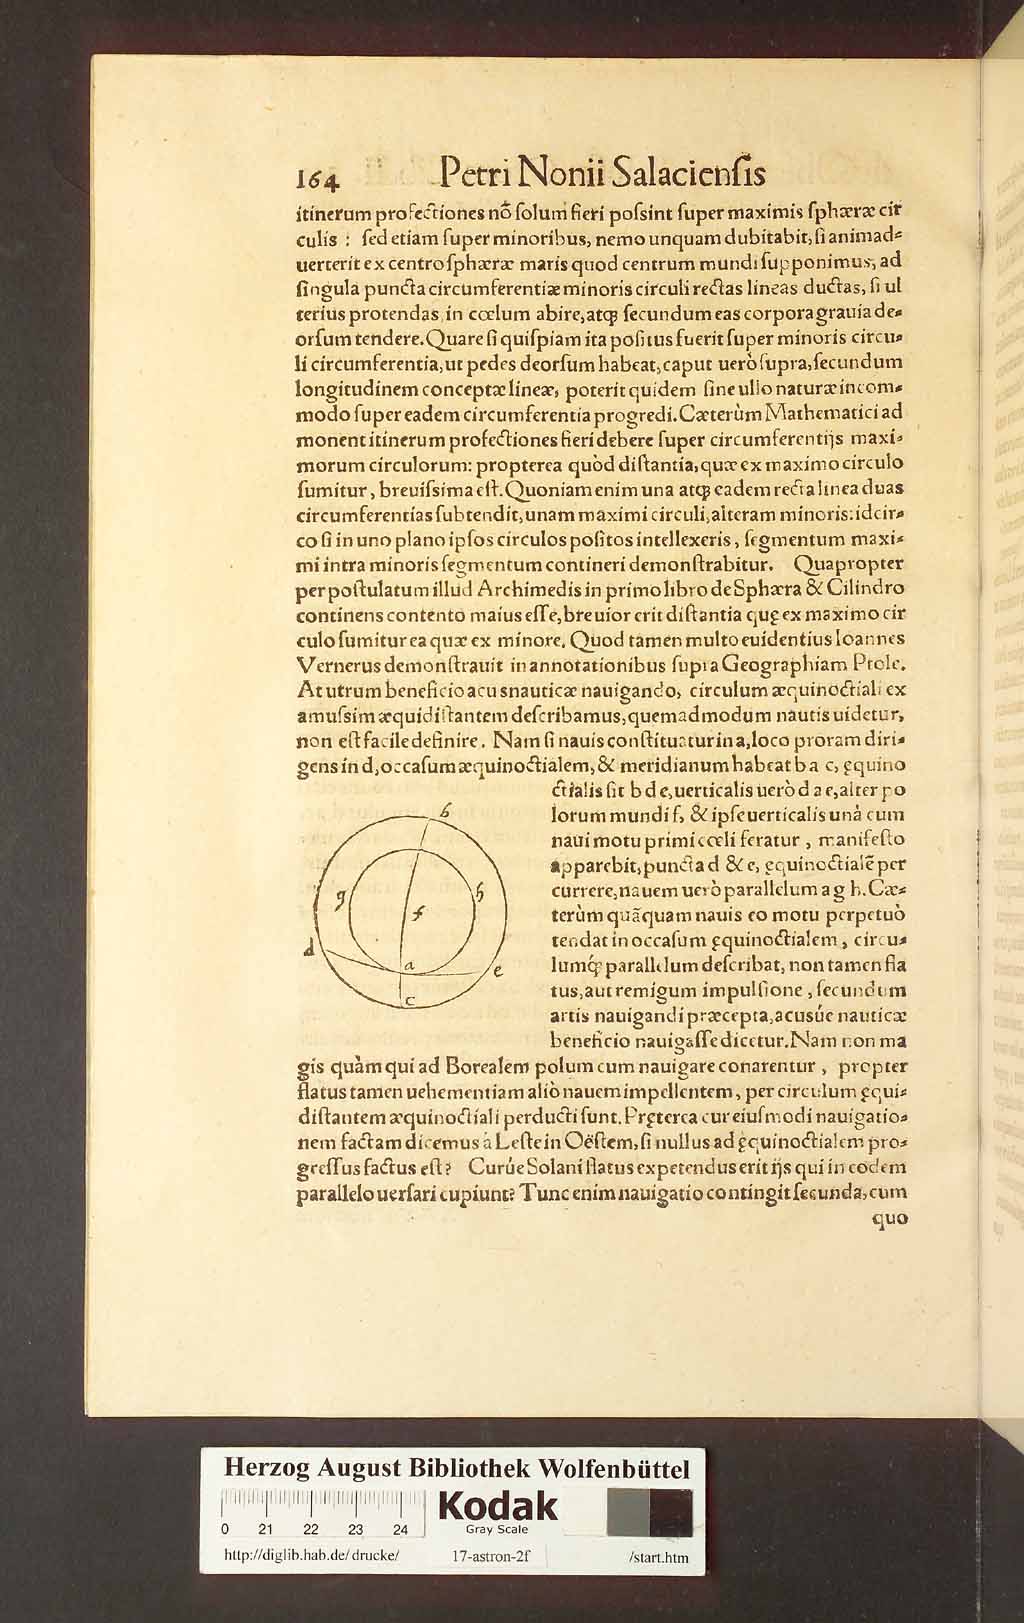 164 Petri Nonii Salaciensis
itinerum profectiones nõ ſolum fieri poſsint ſuper maximis ſphæræ cir
culis : ſed etiam ſuper minoribus, nemo unquam dubitabit, ſi animad⸗
uerterit ex centro ſphæræ maris quod centrum mundi ſupponimus, ad
ſingula puncta circumferentiæ minoris circuli rectas lineas ductas, ſi ul
terius protendas, in cœlum abire, atqꝫ ſecundum eas corpora grauia de⸗
orſum tendere. Quare ſi quiſpiam ita poſitus fuerit ſuper minoris circu⸗
li circumferentia, ut pedes deorſum habeat, caput uerò ſupra, ſecundum
longitudinem conceptæ lineæ, poterit quidem ſine ullo naturæ incom⸗
modo ſuper eadem circumferentia progredi. Cæterùm Mathematici ad
monent itinerum profectiones fieri debere ſuper circumferentijs maxi⸗
morum circulorum: propterea quòd diſtantia, quæ ex maximo circulo
ſumitur, breuiſsima eſt. Quoniam enim una atqꝫ eadem recta linea duas
circumferentias ſubtendit, unam maximi circuli, alteram minoris: idcir⸗
co ſi in uno plano ipſos circulos poſitos intellexeris, ſegmentum maxi⸗
mi intra minoris ſegmentum contineri demonſtrabitur. Quapropter
per poſtulatum illud Archimedis in primo libro de Sphæra & Cilindro
continens contento maius eſſe, breuior erit diſtantia quę ex maximo cir
culo ſumitur ea quæ ex minore. Quod tamen multo euidentius Ioannes
Vernerus demonſtrauit in annotationibus ſupra Geographiam Ptole.
At utrum beneficio acus nauticæ nauigando, circulum æquinoctiali ex
amuſsim æquidiſtantem deſcribamus, quemadmodum nautis uidetur,
non eſt facile definire. Nam ſi nauis conſtituatur in a, loco proram diri⸗
gens in d, occaſum æquinoctialem, & meridianum habeat b a c, ęquino
ctialis ſit b d e, uerticalis uerò d a e, alter po
lorum mundi f, & ipſe uerticalis unà cum
naui motu primi cœli feratur, manifeſto
apparebit, puncta d & e, ęquinoctialē per
currere, nauem uerò parallelum a g h. Cæ⸗
terùm quãquam nauis eo motu perpetuò
tendat in occaſum ęquinoctialem, circu⸗
lumq́ꝫ parallelum deſcribat, non tamen fla
tus, aut remigum impulſione, ſecundum
artis nauigandi præcepta, acusúe nauticæ
beneficio nauigaſſe dicetur. Nam non ma
b
g
h
f
d
a
e
c
gis quàm qui ad Borealem polum cum nauigare conarentur, propter
flatus tamen uehementiam aliò nauem impellentem, per circulum ęqui⸗
diſtantem æquinoctiali perducti ſunt. Pręterea cur eiuſmodi nauigatio⸗
nem factam dicemus à Leſte in Oëſtem, ſi nullus ad ęquinoctialem pro⸗
greſſus factus eſt? Curúe Solani flatus expetendus erit ijs qui in eodem
parallelo uerſari cupiunt? Tunc enim nauigatio contingit ſecunda, cum
quo
Herzog August Bibliothek Wolfenbüttel
0 21 22 23 24
Kodak
Gray Scale
http://diglib.hab.de/drucke/ 17-astron-2f /start.htm